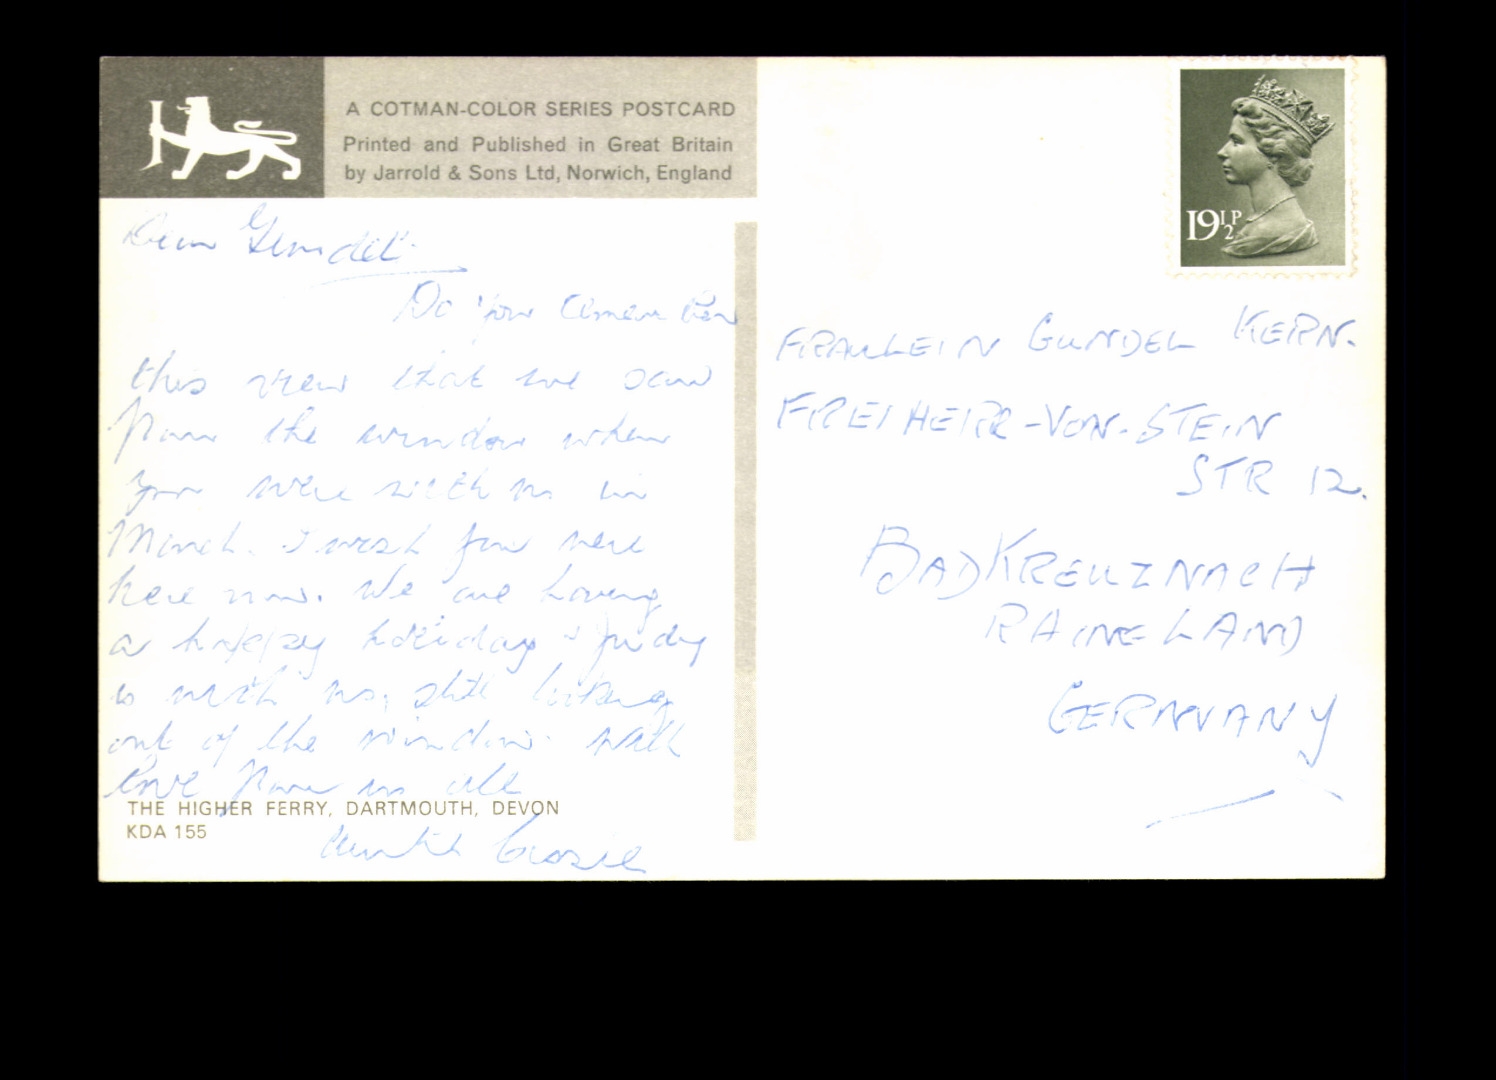 A COTMAN-COLOR SERIES POSTCARD
Printed and Published in Great Britain
by Jarrold & Sons Ltd, Norwich, England
19½P
Dear Gundel.
Do you remember
this view that we saw
from the window when
you were with us in
March. I wish you were
here now. We are having
a happy holiday & Judy
is with us, still looking
out of the window. With
love from us all
THE HIGHER FERRY, DARTMOUTH, DEVON
KDA 155
FRAULEIN GUNDEL KERN.
FREIHERR-VON-STEIN
STR 12.
BAD KREUZNACH
RHINELAND
GERMANY